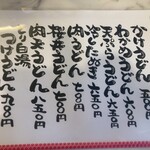 かけうどん 五五〇円
わかめうどん 六五〇円
天ぷらうどん 六五〇円
冷したぬき 六五〇円
肉うどん 七〇〇円
桜井うどん 七五〇円
肉天うどん 八五〇円
白湯
つけうどん 九〇〇円